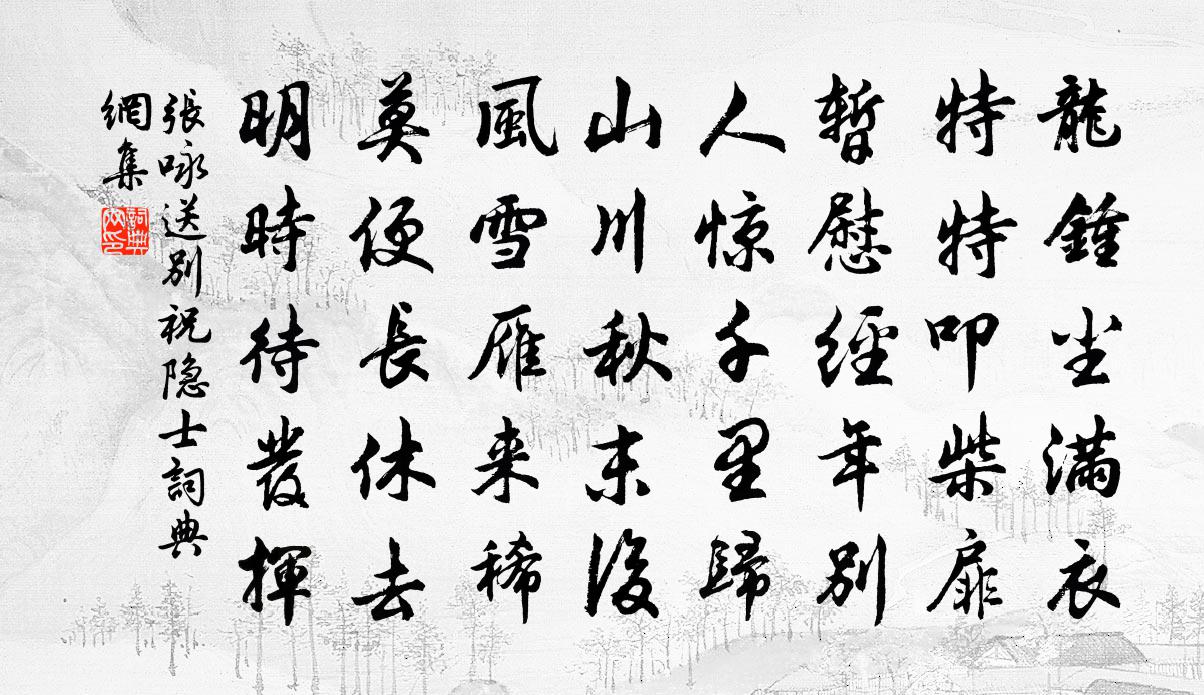 龍鍾尘滿衣
特特叩柴扉
暫慰經年别
人惊千里歸
山川秋末後
風雪雁来稀
莫便長休去
明時待發揮
張咏送别祝隐士詞典
網集
詞典
网印